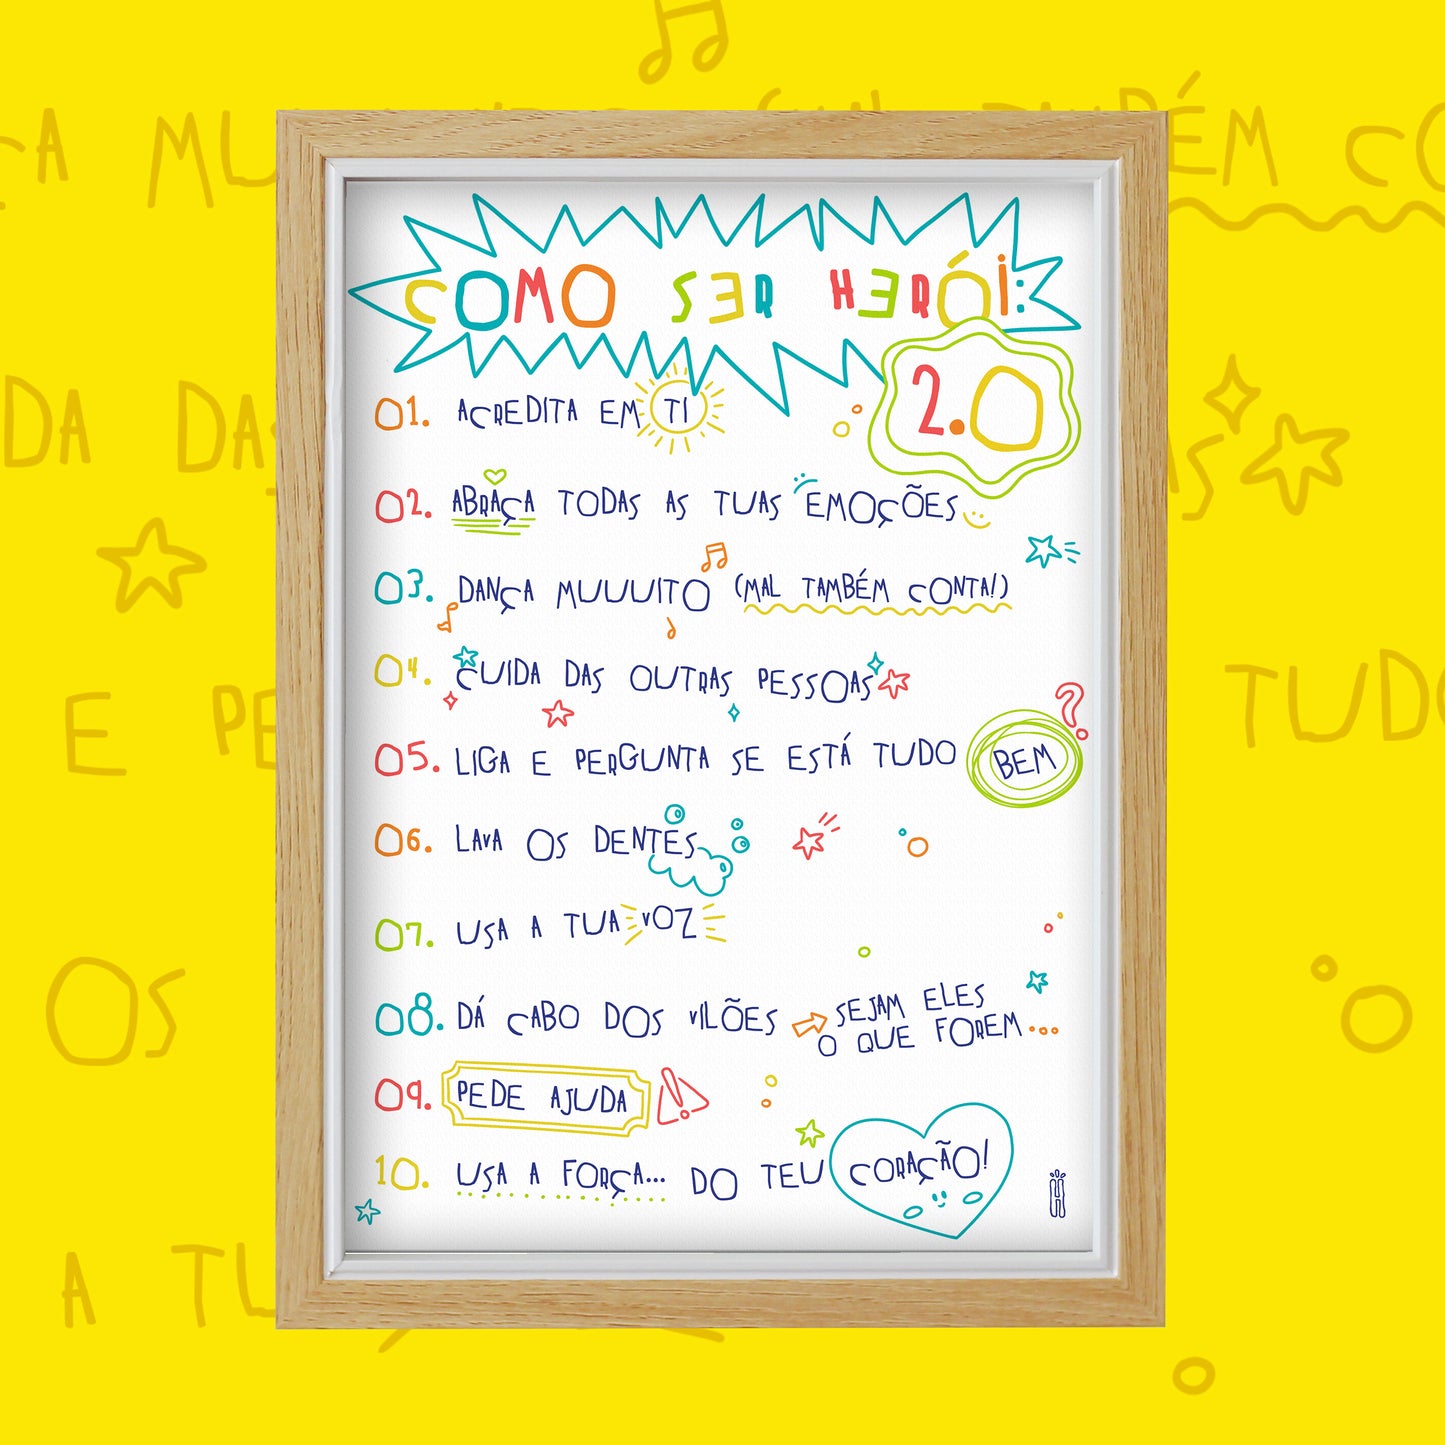 COMO SER HERÓI:
2.0
01. ACREDITA EM TI
02. ABRAÇA TODAS AS TUAS EMOÇÕES
03. DANÇA MUUUITO (MAL TAMBÉM CONTA!)
04. CUIDA DAS OUTRAS PESSOAS
05. LIGA E PERGUNTA SE ESTÁ TUDO BEM?
06. LAVA OS DENTES
07. USA A TUA VOZ
08. DÁ CABO DOS VILÕES → SEJAM ELES
O QUE FOREM...
09. PEDE AJUDA
10. USA A FORÇA... DO TEU CORAÇÃO!